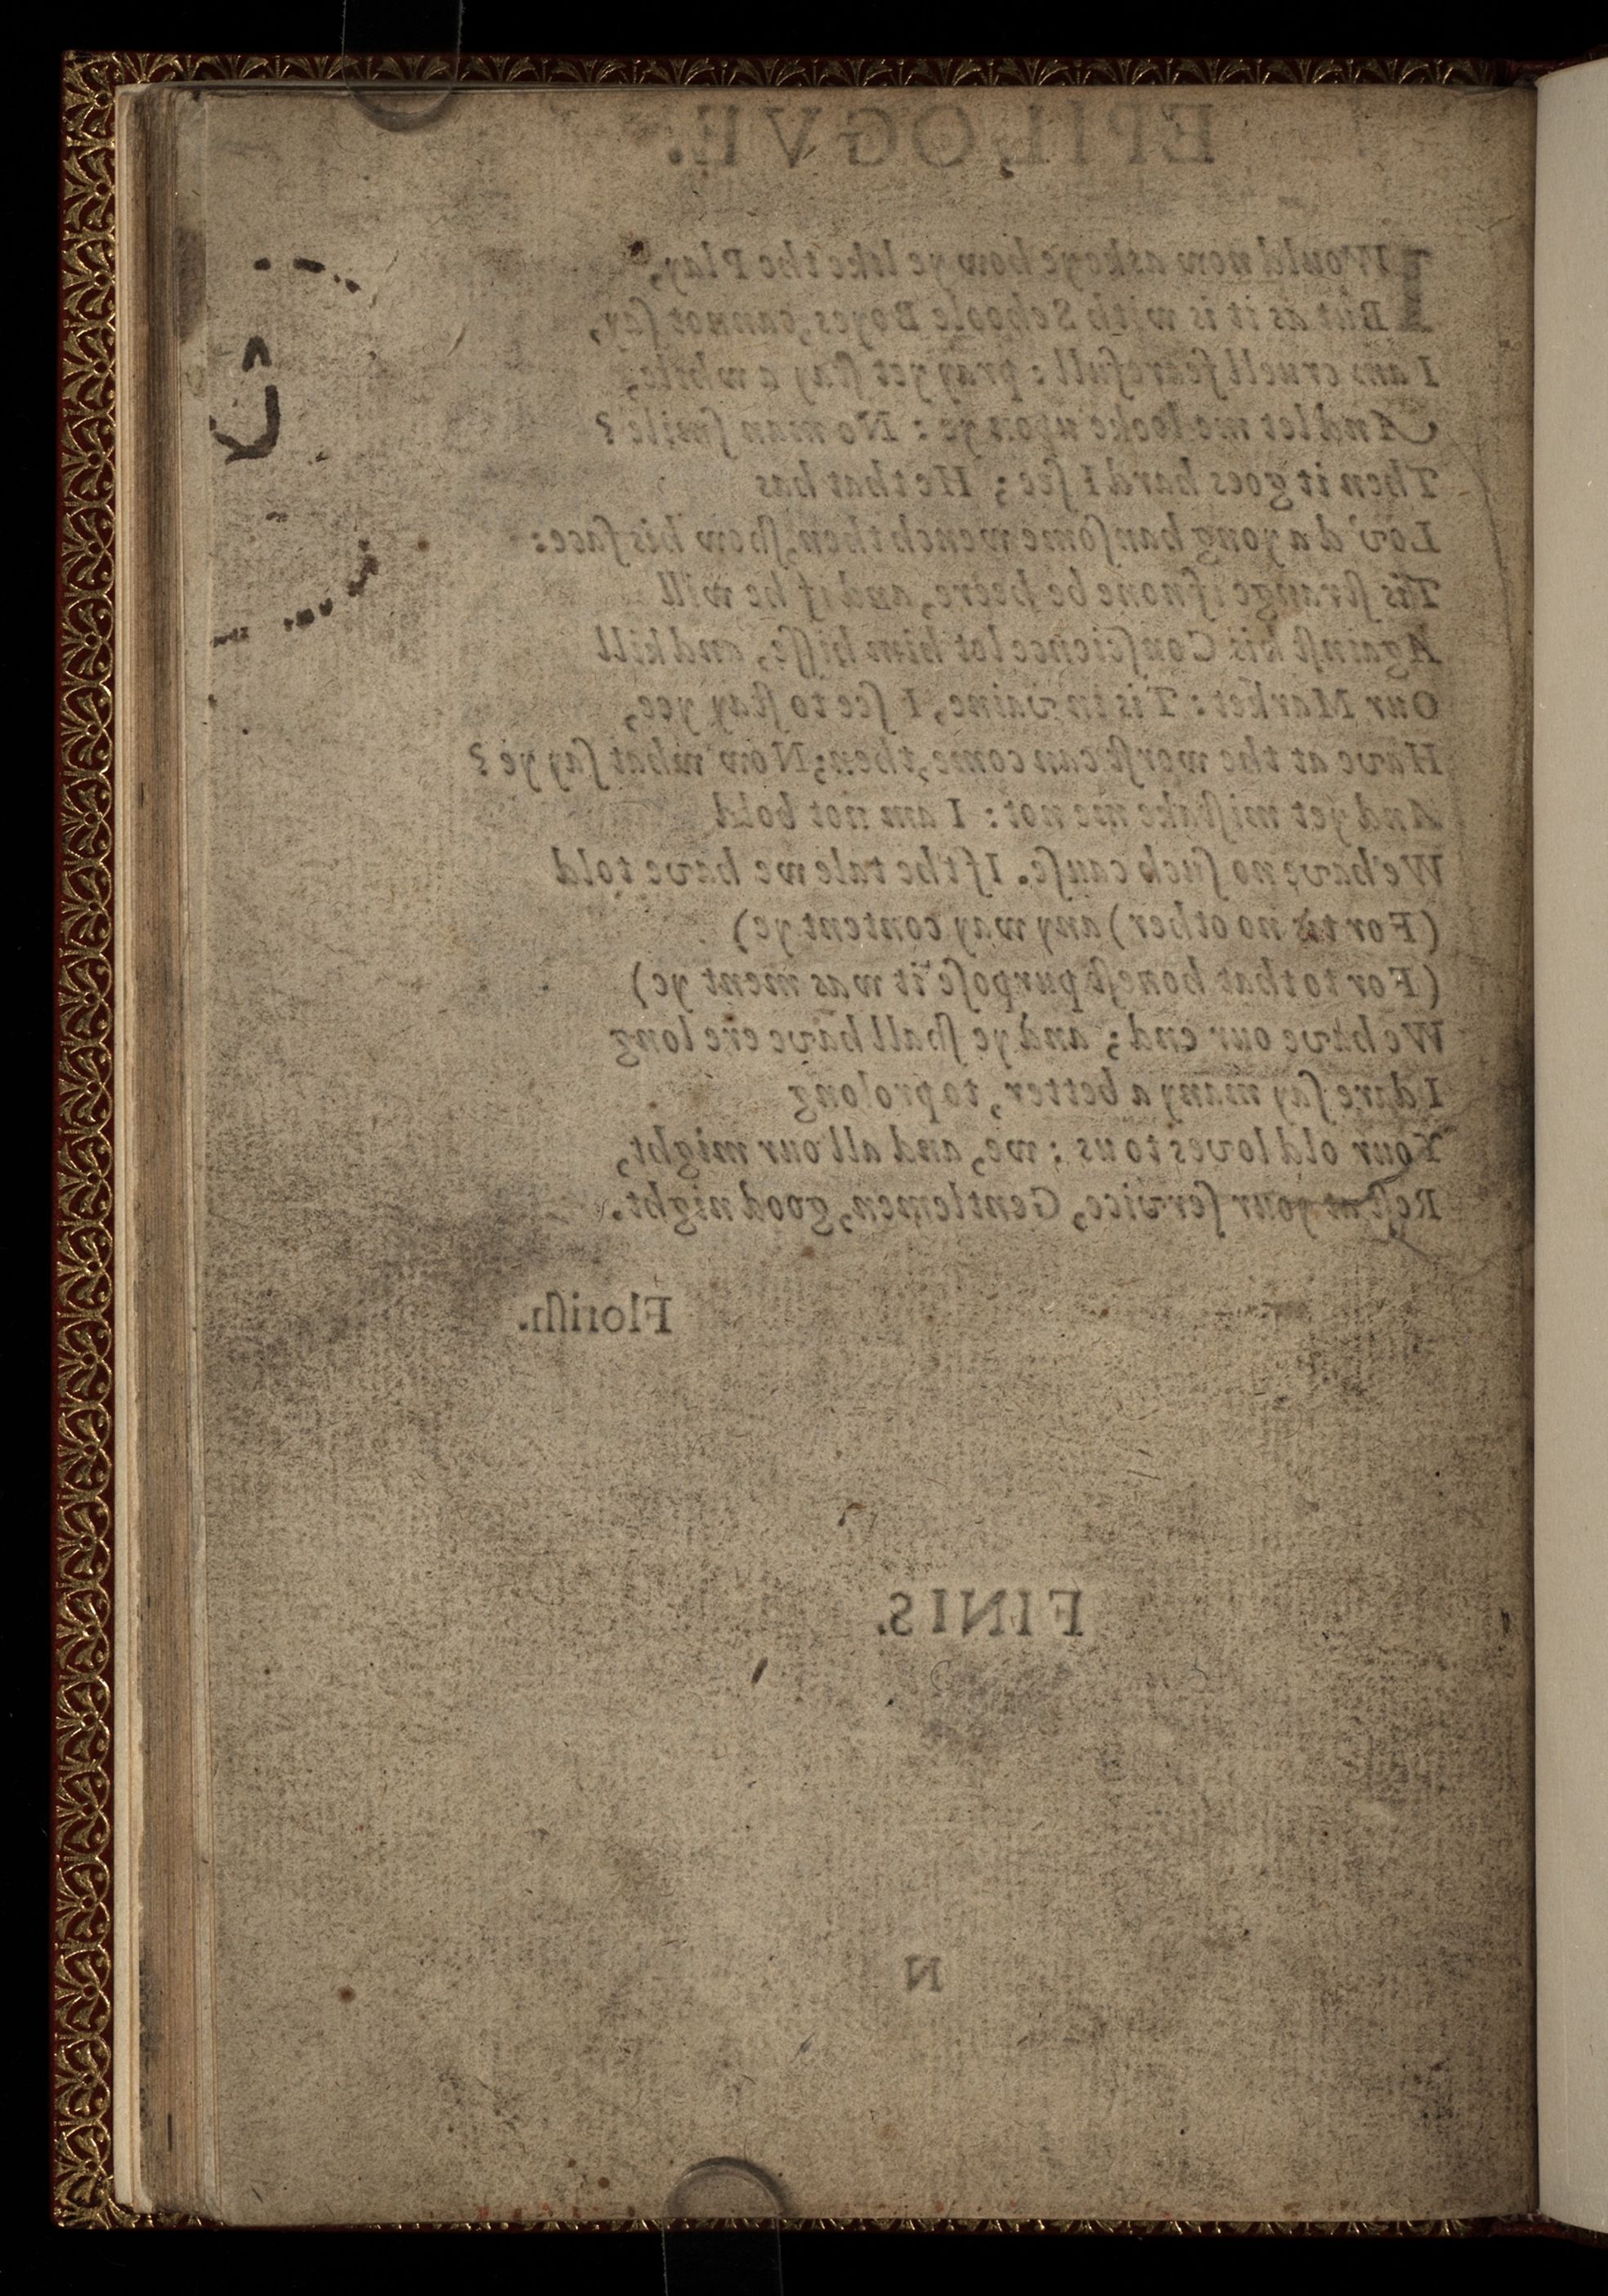 EPILOGVE.
I Would now aske ye how ye like the Play,
But as it is with Schoole Boyes, cannot ſay,
I am cruell fearefull: pray yet ſtay a while,
And let me looke upon ye: No man ſmile?
Then it goes hard I ſee; He that has
Lov'd a yong hanſome wench then, ſhow his face:
Tis ſtrange if none be heere, and if he will
Againſt his Conſcience let him hiſſe, and kill
Our Market: Tis in vaine, I ſee to ſtay yee,
Have at the worſt can come, then; Now what ſay ye?
And yet miſtake me not: I am not bold
We have no ſuch cauſe. If the tale we have told
(For tis no other) any way content ye)
(For to that honeſt purpoſe it was ment ye)
We have our end; and ye ſhall have ere long
I dare ſay many a better, to prolong
Your old loves to us: we, and all our might,
Reſt at your ſervice, Gentlemen, good night.
Floriſh.
FINIS.
N